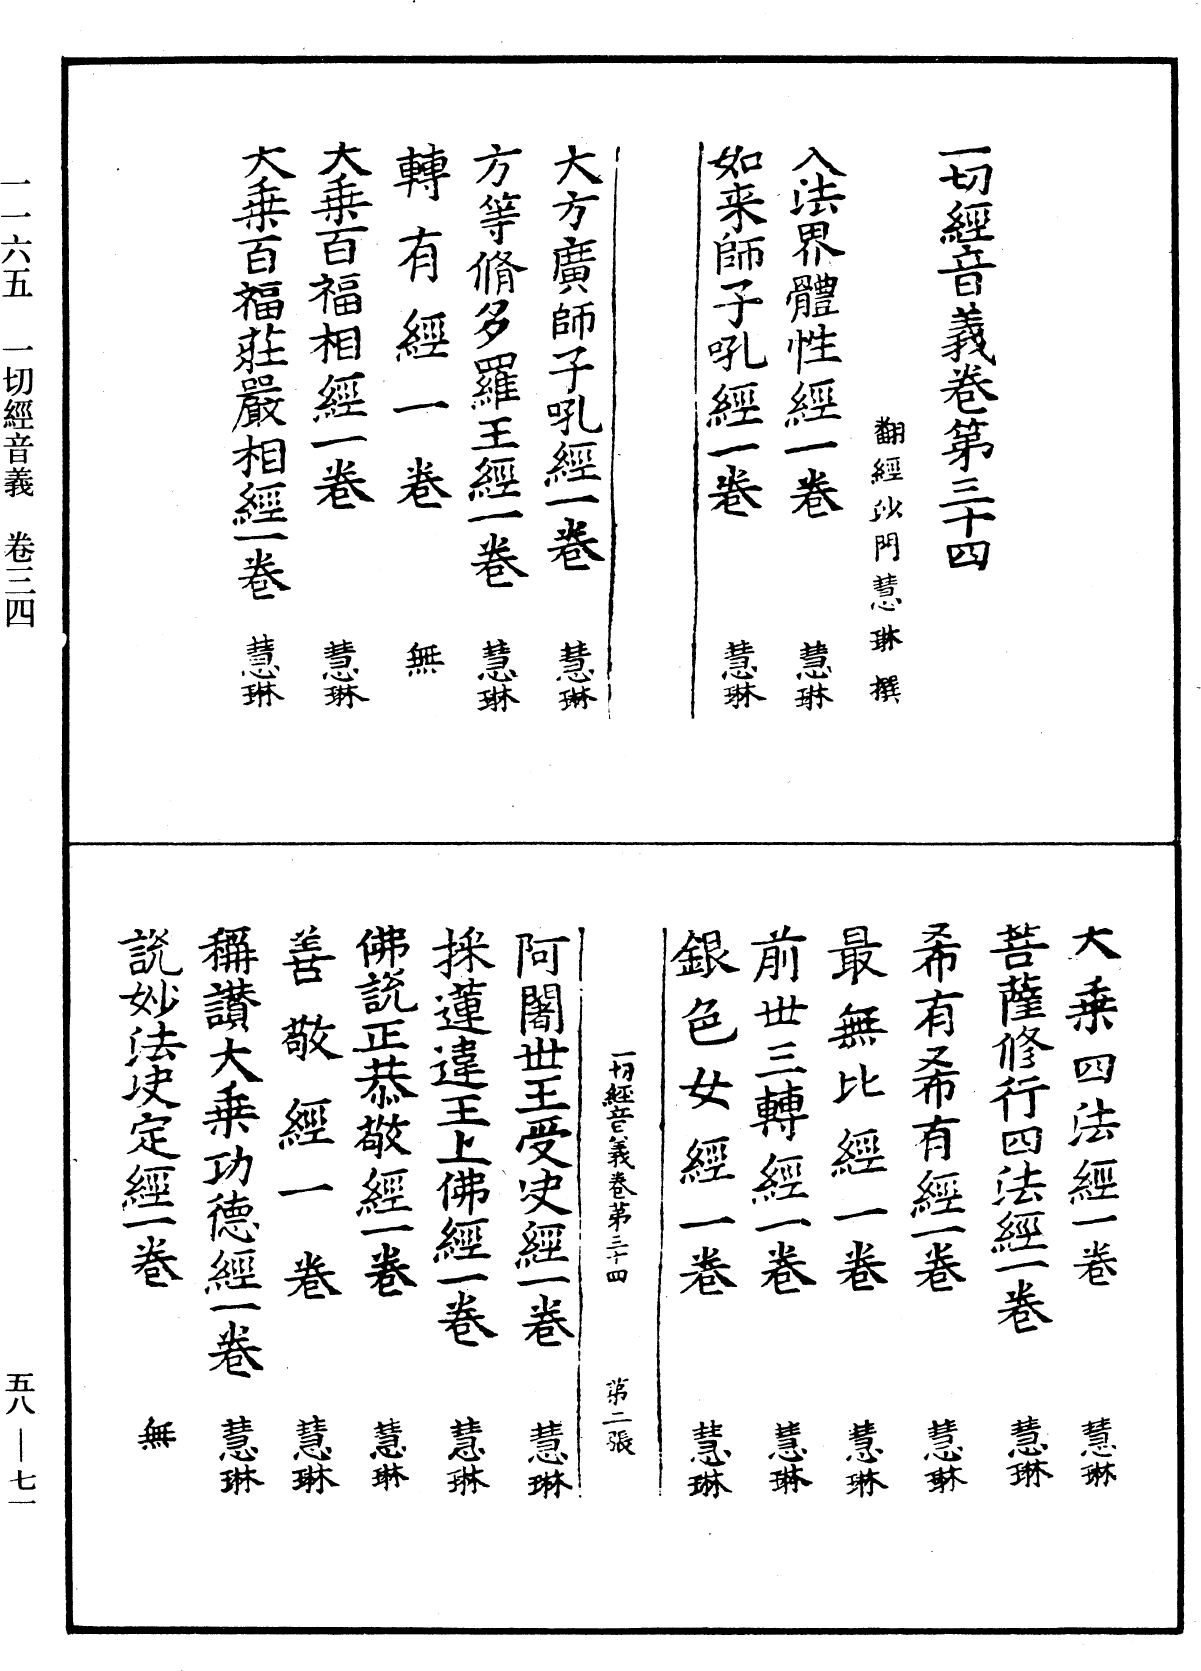 一切經音義卷第三十四
翻經沙門慧琳撰
入法界體性經一卷 慧琳
如来師子吼經一卷 慧琳
大方廣師子吼經一卷 慧琳
方等脩多羅王經一卷 慧琳
轉有經一卷 無
大乗百福相經一卷 慧琳
大乗百福莊嚴相經一卷 慧琳
大乗四法經一卷 慧琳
菩薩修行四法經一卷 慧琳
希有希有經一卷 慧琳
最無比經一卷 慧琳
前世三轉經一卷 慧琳
銀色女經一卷 慧琳
一切經音義卷第三十四 第二張
阿闍世王受决經一卷 慧琳
採蓮違王上佛經一卷 慧琳
佛説正恭敬經一卷 慧琳
善敬經一卷 慧琳
稱讃大乗功德經一卷 慧琳
説妙法决定經一卷 無
一一六五 一切經音義 卷三四
五八—七一